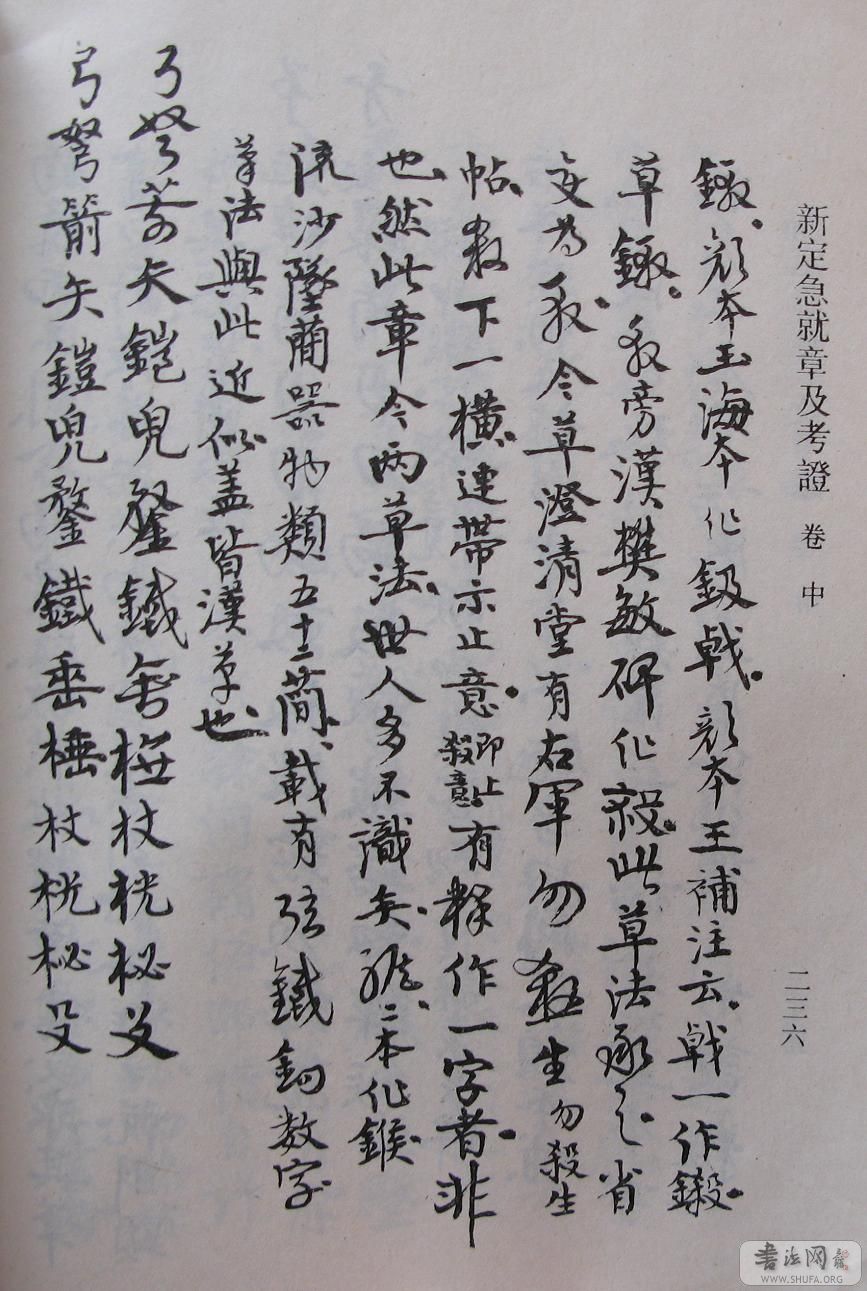 新定急就章及考證 卷中 二三六
鍭。顏本王海本作鈒戟。顏本王補注云。戟一作鎩。
草鍭。旁漢樊敏碑作殺。此草法承之省
變為。今草澄清堂有右軍勿殺生勿殺生
帖。殺下一橫。連帶示止意。即止殺意有釋作一字者。非
也。然此章今兩草法。世人多不識矣。二本作鍭
流沙墜蕳器物類五十二蕳、載有弦鐵鉤數字
草法與此近似蓋皆漢草也
弓弩箭矢鎧兜鍪鐵杖桄柲殳
弓弩箭矢鎧兜鍪鐵垂棰杖桄柲殳
書法网
WWW.SHUFA.ORG